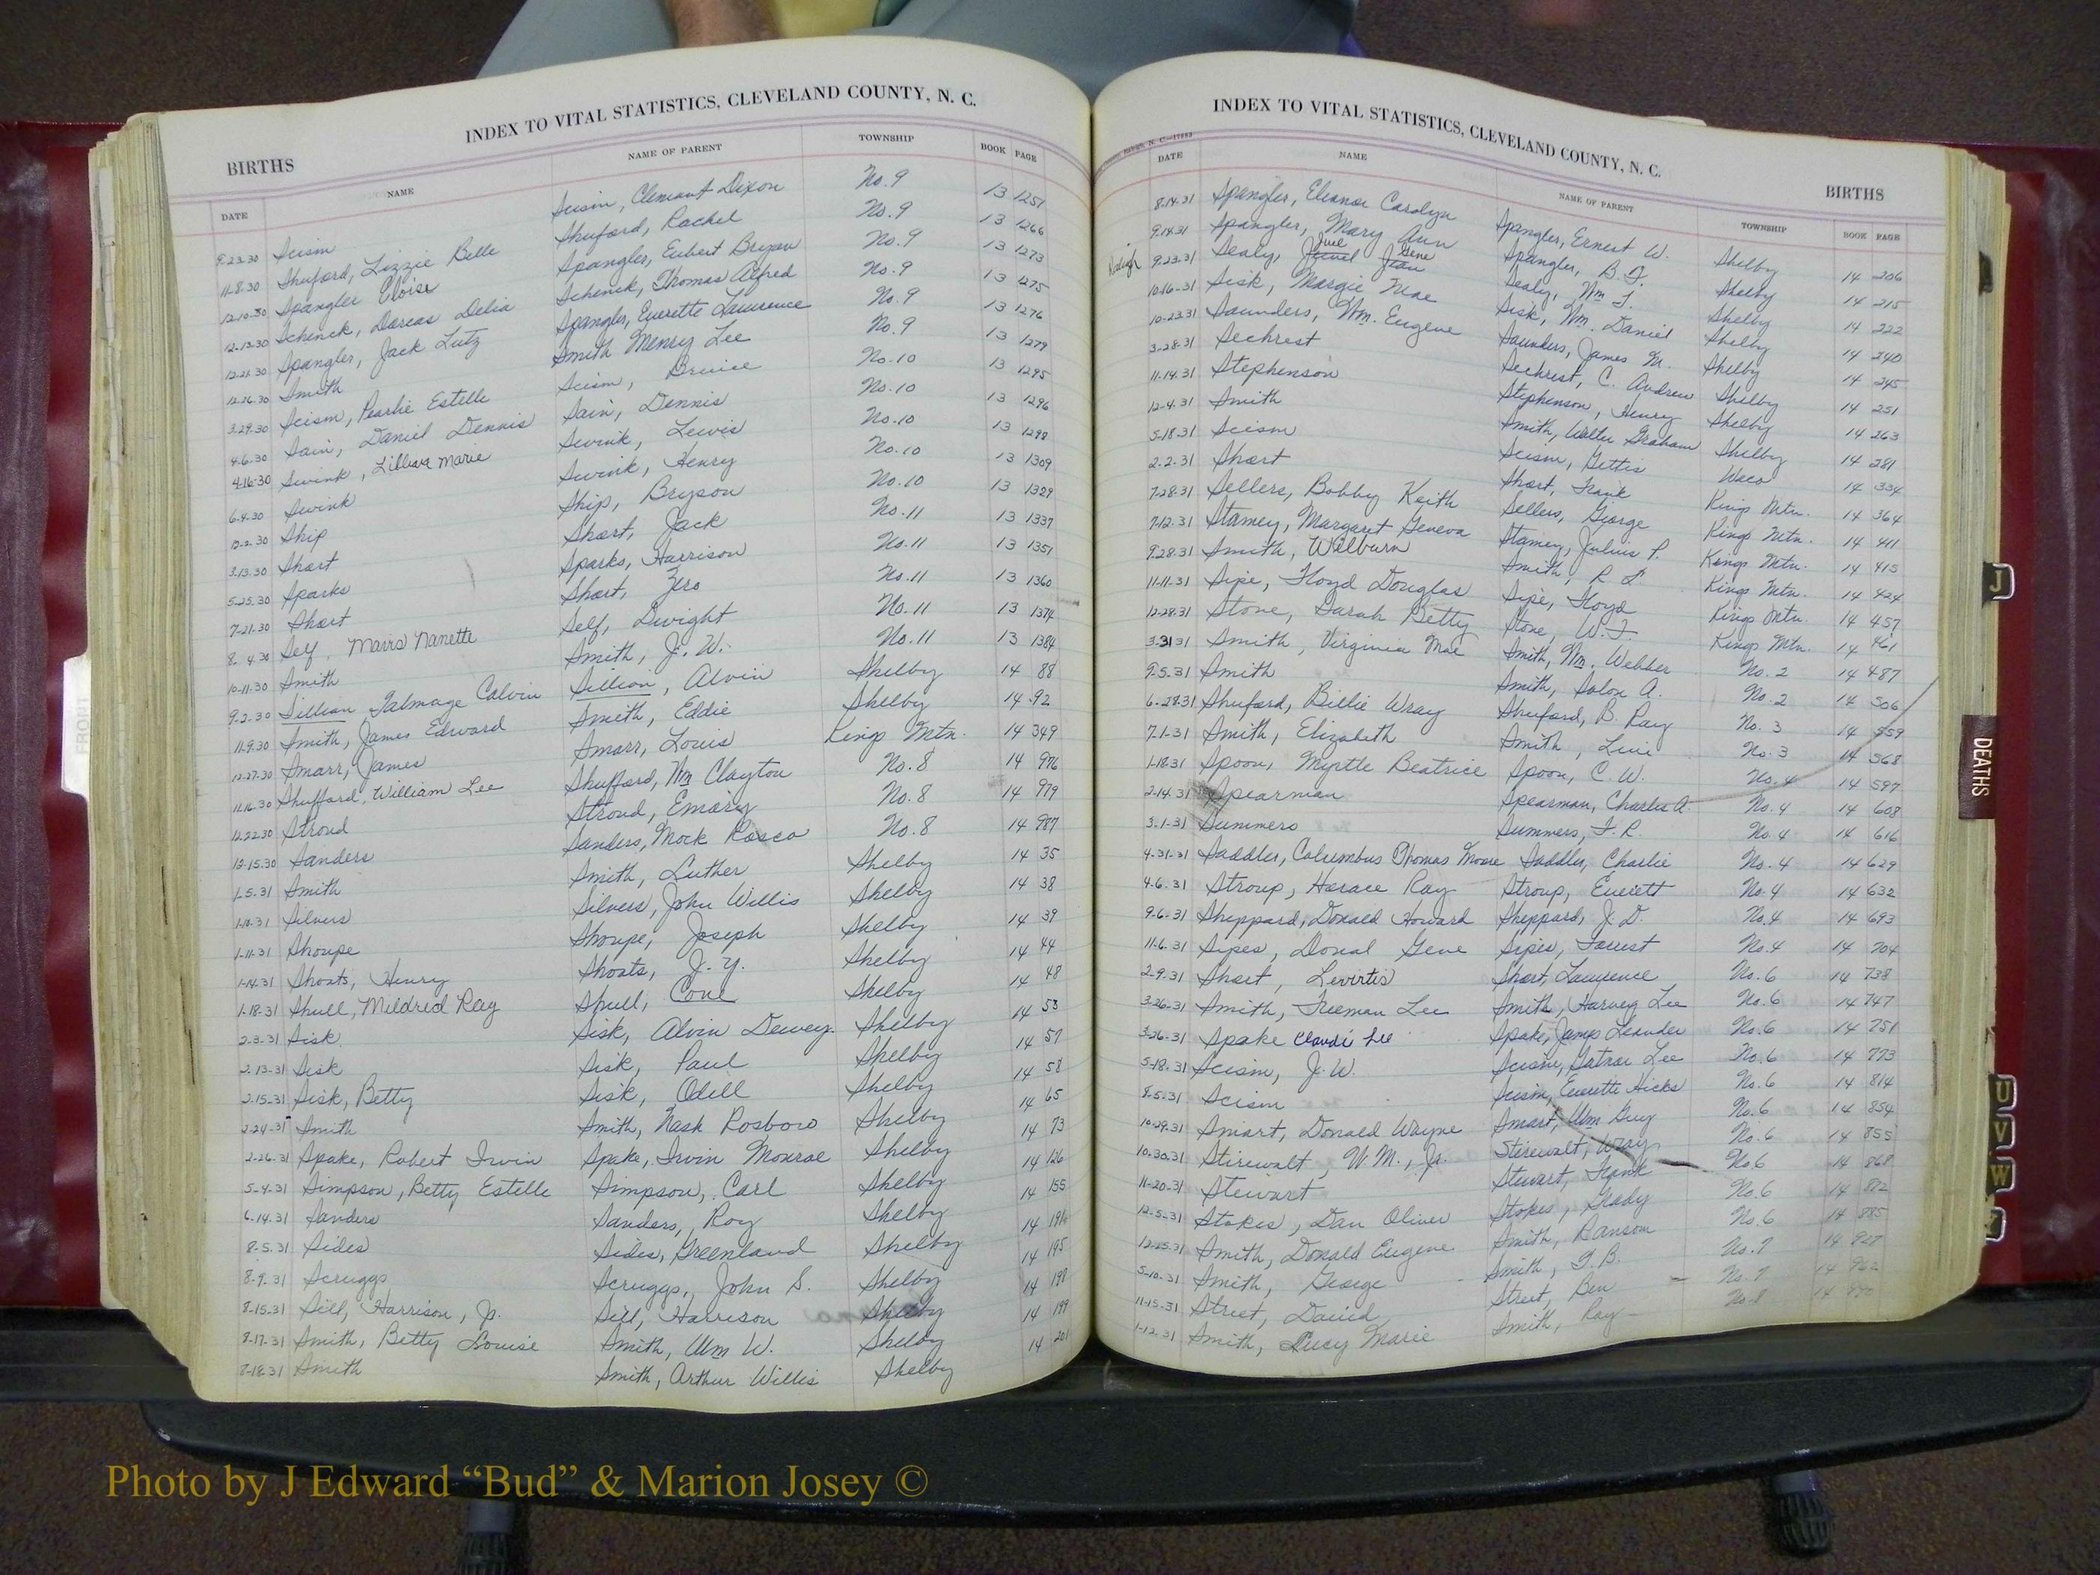 INDEX TO VITAL STATISTICS, CLEVELAND COUNTY, N. C.
BIRTHS
DATE NAME NAME OF PARENT TOWNSHIP BOOK PAGE
9-23-30 Scism Scism, Clement Dixon No. 9 13 1257
11-8-30 Shuford, Lizzie Belle Shuford, Rachel No. 9 13 1266
12-10-30 Spangler Eloise Spangler, Eubert Bryan No. 9 13 1273
12-13-30 Schenck, Dorcas Delia Schenck, Thomas Alfred No. 9 13 1275
12-21-30 Spangler, Jack Lutz Spangler, Everette Lawrence No. 9 13 1276
12-26-30 Smith Smith Henry Lee No. 9 13 1279
3-29-30 Scism, Pearlie Estelle Scism, No. 10 13 1295
4-6-30 Sain, Daniel Dennis Sain, Dennis No. 10 13 1296
4-16-30 Swink, Lillian Marie Swink, Lewis No. 10 13 1298
6-4-30 Swink Swink, Henry No. 10 13 1309
12-2-30 Ship Ship, Bryson No. 10 13 1329
3-13-30 Short Short, Jack No. 11 13 1337
5-25-30 Sparks Sparks, Harrison No. 11 13 1351
7-21-30 Short Short, Zero No. 11 13 1360
8-4-30 Self, Nanette Self, Dwight No. 11 13 1374
10-11-30 Smith Smith, J. W. No. 11 13 1384
9-2-30 Talmage Calvin Alvin Shelby 14 88
11-9-30 Smith, James Edward Smith, Eddie Shelby 14 92
12-27-30 Smarr, James Smarr, Louis Kings Mtn. 14 349
11-16-30 Shufford, William Lee Shufford, Wm Clayton No. 8 14 976
12-22-30 Stroud Stroud, Emory No. 8 14 979
12-15-30 Sanders Sanders, Mock Rosco No. 8 14 987
1-5-31 Smith Smith, Luther Shelby 14 35
1-10-31 Silvers Silvers, John Willis Shelby 14 38
1-11-31 Shoupe Shoupe, Joseph Shelby 14 39
1-14-31 Shoats, Henry Shoats, J. Y. Shelby 14 44
1-18-31 Shull, Mildred Ray Shull, Cone Shelby 14 48
2-3-31 Sisk Sisk, Alvin Dewey Shelby 14 53
2-13-31 Sisk Sisk, Paul Shelby 14 57
2-15-31 Sisk, Betty Sisk, Odell Shelby 14 58
2-24-31 Smith Smith, Nash Rosboro Shelby 14 65
2-26-31 Spake, Robert Irvin Spake, Irvin Monroe Shelby 14 73
5-4-31 Simpson, Betty Estelle Simpson, Carl Shelby 14 126
6-14-31 Sanders Sanders, Roy Shelby 14 155
8-5-31 Sides Sides, Greenland Shelby 14
8-9-31 Scruggs Scruggs, John S. Shelby 14 195
8-15-31 Self, Harrison, Jr. Self, Harrison Shelby 14 198
8-17-31 Smith, Betty Louise Smith, Wm W. Shelby 14 199
8-18-31 Smith Smith, Arthur Willis Shelby 14 201
INDEX TO VITAL STATISTICS, CLEVELAND COUNTY, N. C.
BIRTHS
DATE NAME NAME OF PARENT TOWNSHIP BOOK PAGE
8-14-31 Spangler, Eleanor Carolyn Spangler, Ernest W. Shelby 14 206
9-14-31 Spangler, Mary Ann Spangler, B. F. Shelby 14 215
Raleigh 9-23-31 Sealy, Juel Gene Sealy, Wm T. Shelby 14 222
10-16-31 Sisk, Margie Mae Sisk, Wm. Daniel Shelby 14 240
10-23-31 Saunders, Wm. Eugene Saunders, James M. Shelby 14 245
3-28-31 Sechrest Sechrest, C. Andrew Shelby 14 251
11-14-31 Stephenson Stephenson, Henry Shelby 14 263
12-4-31 Smith Smith, Walter Graham Shelby 14 281
5-18-31 Scism Scism, Gettis Waco 14 334
2-2-31 Short Short, Frank Kings Mtn. 14 364
7-28-31 Sellers, Bobby Keith Sellers, George Kings Mtn. 14 411
7-12-31 Stamey, Margaret Geneva Stamey, Julius P. Kings Mtn. 14 415
9-28-31 Smith, Wilburn Smith, R. L. Kings Mtn. 14 424
11-11-31 Sipe, Floyd Douglas Sipe, Floyd Kings Mtn. 14 457
12-28-31 Stone, Sarah Betty Stone, W. F. Kings Mtn. 14 461
3-31-31 Smith, Virginia Mae Smith, Wm. Webber No. 2 14 487
9-5-31 Smith Smith, Solon A. No. 2 14 506
6-28-31 Shuford, Billie Wray Shuford, B. Ray No. 3 14 559
7-1-31 Smith, Elizabeth Smith, No. 3 14 568
1-18-31 Spoon, Myrtle Beatrice Spoon, C. W. No. 4 14 597
2-14-31 Spearman Spearman, Charlie A. No. 4 14 608
3-1-31 Summers Summers, F. R. No. 4 14 616
4-31-31 Saddler, Columbus Thomas Moore Saddler, Charlie No. 4 14 629
4-6-31 Stroup, Horace Ray Stroup, Everett No. 4 14 632
9-6-31 Sheppard, Donald Howard Sheppard, J. D. No. 4 14 693
11-6-31 Sipes, Donal Gene Sipes, Forrest No. 4 14 704
2-9-31 Short, Levertis Short, Lawrence No. 6 14 738
3-26-31 Smith, Freeman Lee Smith, Harvey Lee No. 6 14 747
3-26-31 Spake Claudi Lee Spake, James Leander No. 6 14 751
5-18-31 Scism, J. W. Scism, Lee No. 6 14 773
8-5-31 Scism Scism, Everette Hicks No. 6 14 814
10-29-31 Smart, Donald Wayne Smart, Wm Guy No. 6 14 854
10-30-31 Stirewalt, W. M., Jr. Stirewalt, Wray No. 6 14 855
11-20-31 Stewart Stewart, Frank No. 6 14 868
12-5-31 Stokes, Dan Oliver Stokes, Grady No. 6 14 872
12-25-31 Smith, Donald Eugene Smith, Ransom No. 6 14 885
5-10-31 Smith, George Smith, T. B. No. 7 14 927
11-15-31 Street, David Street, Ben No. 7 14
1-12-31 Smith, Lucy Marie Smith, Ray No. 8 14
FRONT
J
DEATHS
U
V
W
Photo by J Edward “Bud” & Marion Josey ©